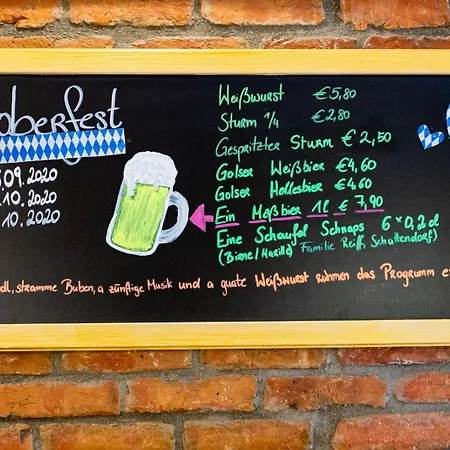 oberfest
.09.2020
.10.2020
.10.2020
Weißwurst €5,80
Sturm 1/4 €2,80
Gespritzter Sturm €2,50
Golser Weißbier €4,60
Golser Hellesbier €4,60
Ein Maßbier 1l € 7,90
Eine Schaufel Schnaps 6 x 0,2 dl
(Birne/Marille) Familie Reiff, Schattendorf)
dl, stramme Buben, a zünftige Musik und a guate Weißwurst ruhmen das Programm